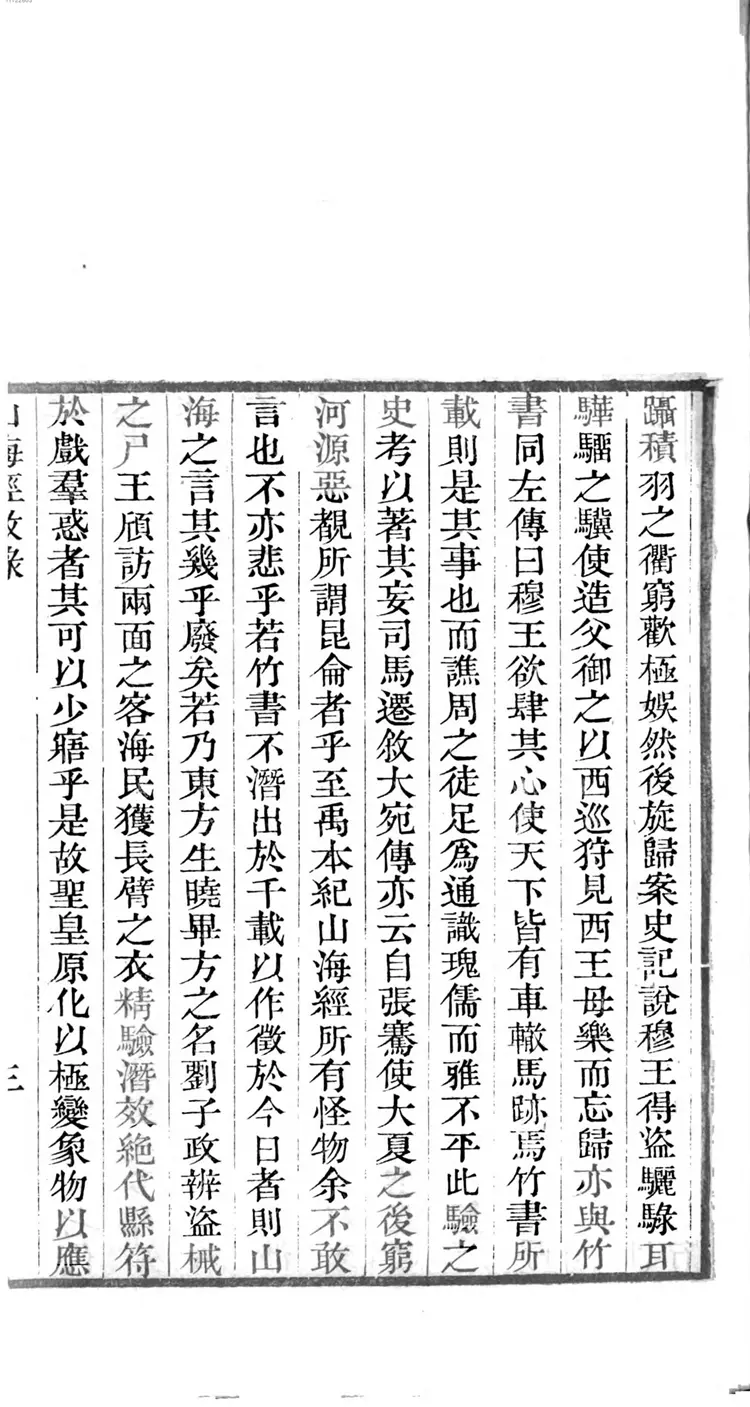 躡積羽之衢窮歡極娛然後旋歸案史記說穆王得盜驪騄耳
驊騮之驥使造父御之以西巡狩見西王母樂而忘歸亦與竹
書同左傳曰穆王欲肆其心使天下皆有車轍馬跡焉竹書所
載則是其事也而譙周之徒足爲通識瑰儒而雅不平此驗之
史考以著其妄司馬遷敘大宛傳亦云自張騫使大夏之後窮
河源惡覩所謂昆侖者乎至禹本紀山海經所有怪物余不敢
言也不亦悲乎若竹書不潛出於千載以作徵於今日者則山
海之言其幾乎廢矣若乃東方生曉畢方之名劉子政辨盜械
之尸王頎訪兩面之客海民獲長臂之衣精驗潛效絕代縣符
於戲羣惑者其可以少寤乎是故聖皇原化以極變象物以應
山海經敘錄
三